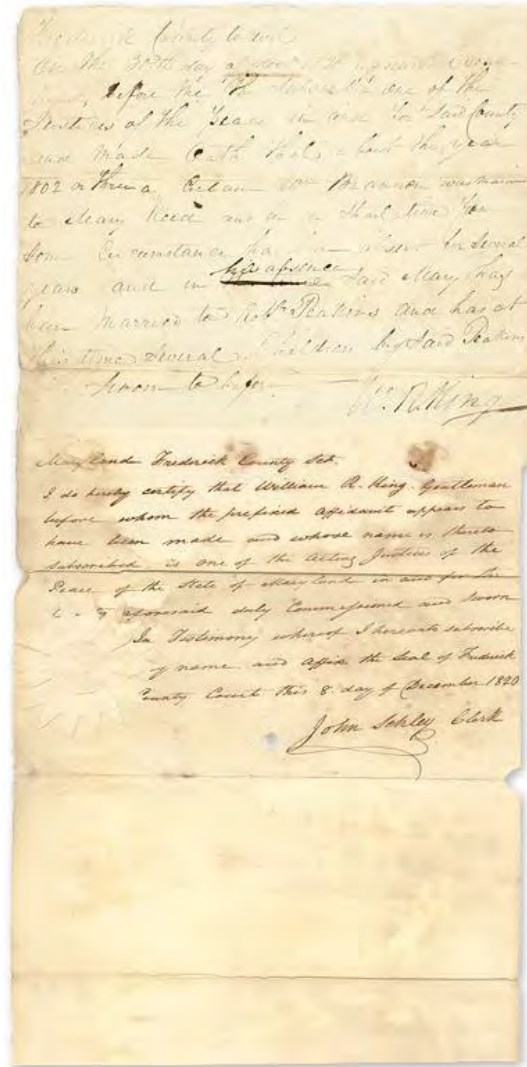 Frederick County to wit
On the 30th day of
before the Subscriber one of the
Justices of the Peace in and for Said County
and Made Oath that about the year
1802 or three a Certain Wm Brannon was
to Mary Reed and in a Short time for
Some Circumstance has been absent for Several
years and in his absence Said Mary has
been Married to Robt Peakins and has at
this time Several Children by Said Peakins
Sworn to before
Wm. R. King
Maryland Frederick County Sct.
I do hereby certify that William R. King Gentleman
before whom the prefixed affidavit appears to
have been made and whose name is thereto
subscribed is one of the acting Justices of the
Peace of the State of Maryland in and for the
aforesaid duly Commissioned and Sworn
In Testimony whereof I hereunto subscribe
my name and affix the Seal of Frederick
County Court this 8 day of December 1820
John Schley Clerk